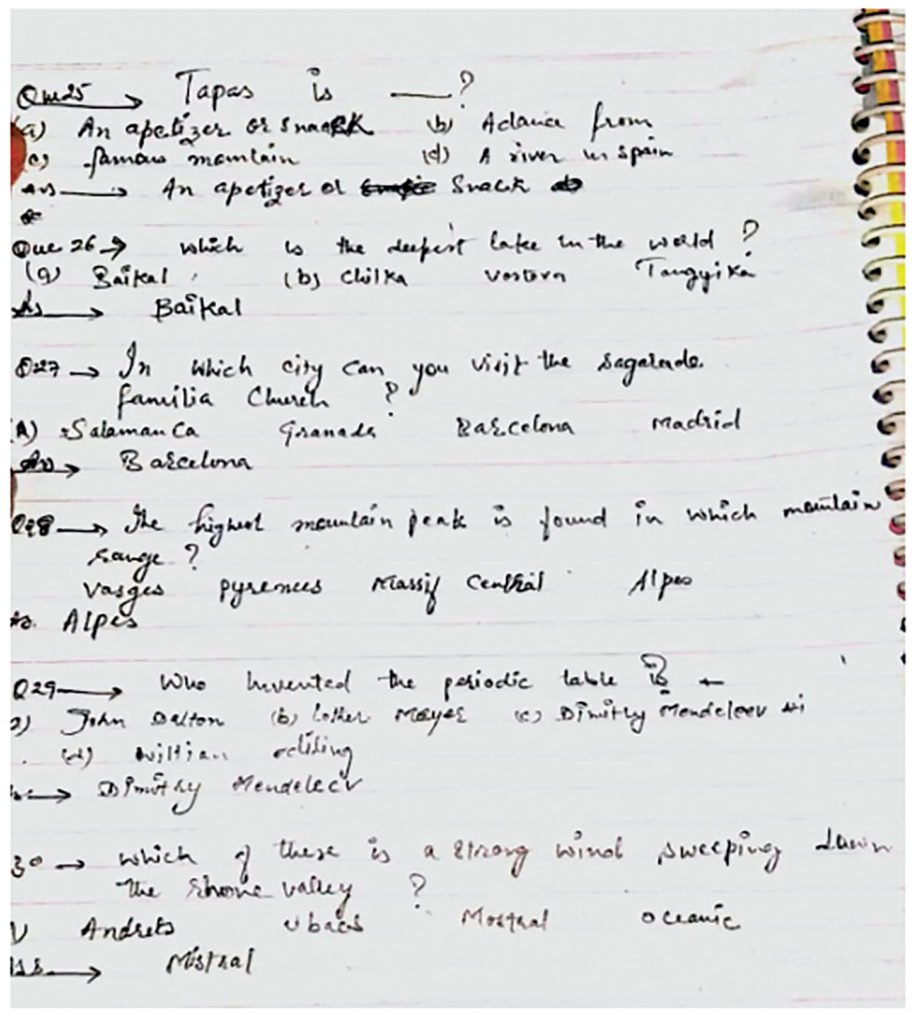 Que25 → Tapas is — ?
(a) An apetizer or snack (b) A dance from
(c) famous mountain (d) A river in spain
Ans → An apetizer or Snack
Que 26 → which is the deepest lake in the world ?
(a) Baikal (b) Chilka Vostorn Tangyika
As → Baikal
Q27 → In which city can you visit the Sagarade
familia Church ?
(A) Salamanca Granada Barcelona Madrid
Ans → Barcelona
Q28 → The highest mountain peak is found in which mountain
range ?
Vasges pyrenees Massif Central Alpes
As. Alpes
Q29 → Who Invented the periodic table
a) John Dalton (b) Lother Mayer (c) Dimithy Mendeleev
(d) willian
→ Dimithy Mendeleev
30 → which of these is a strong wind sweeping down
the Rhone valley ?
Andrets Ubacs Mostral Oceanic
→ Mistral